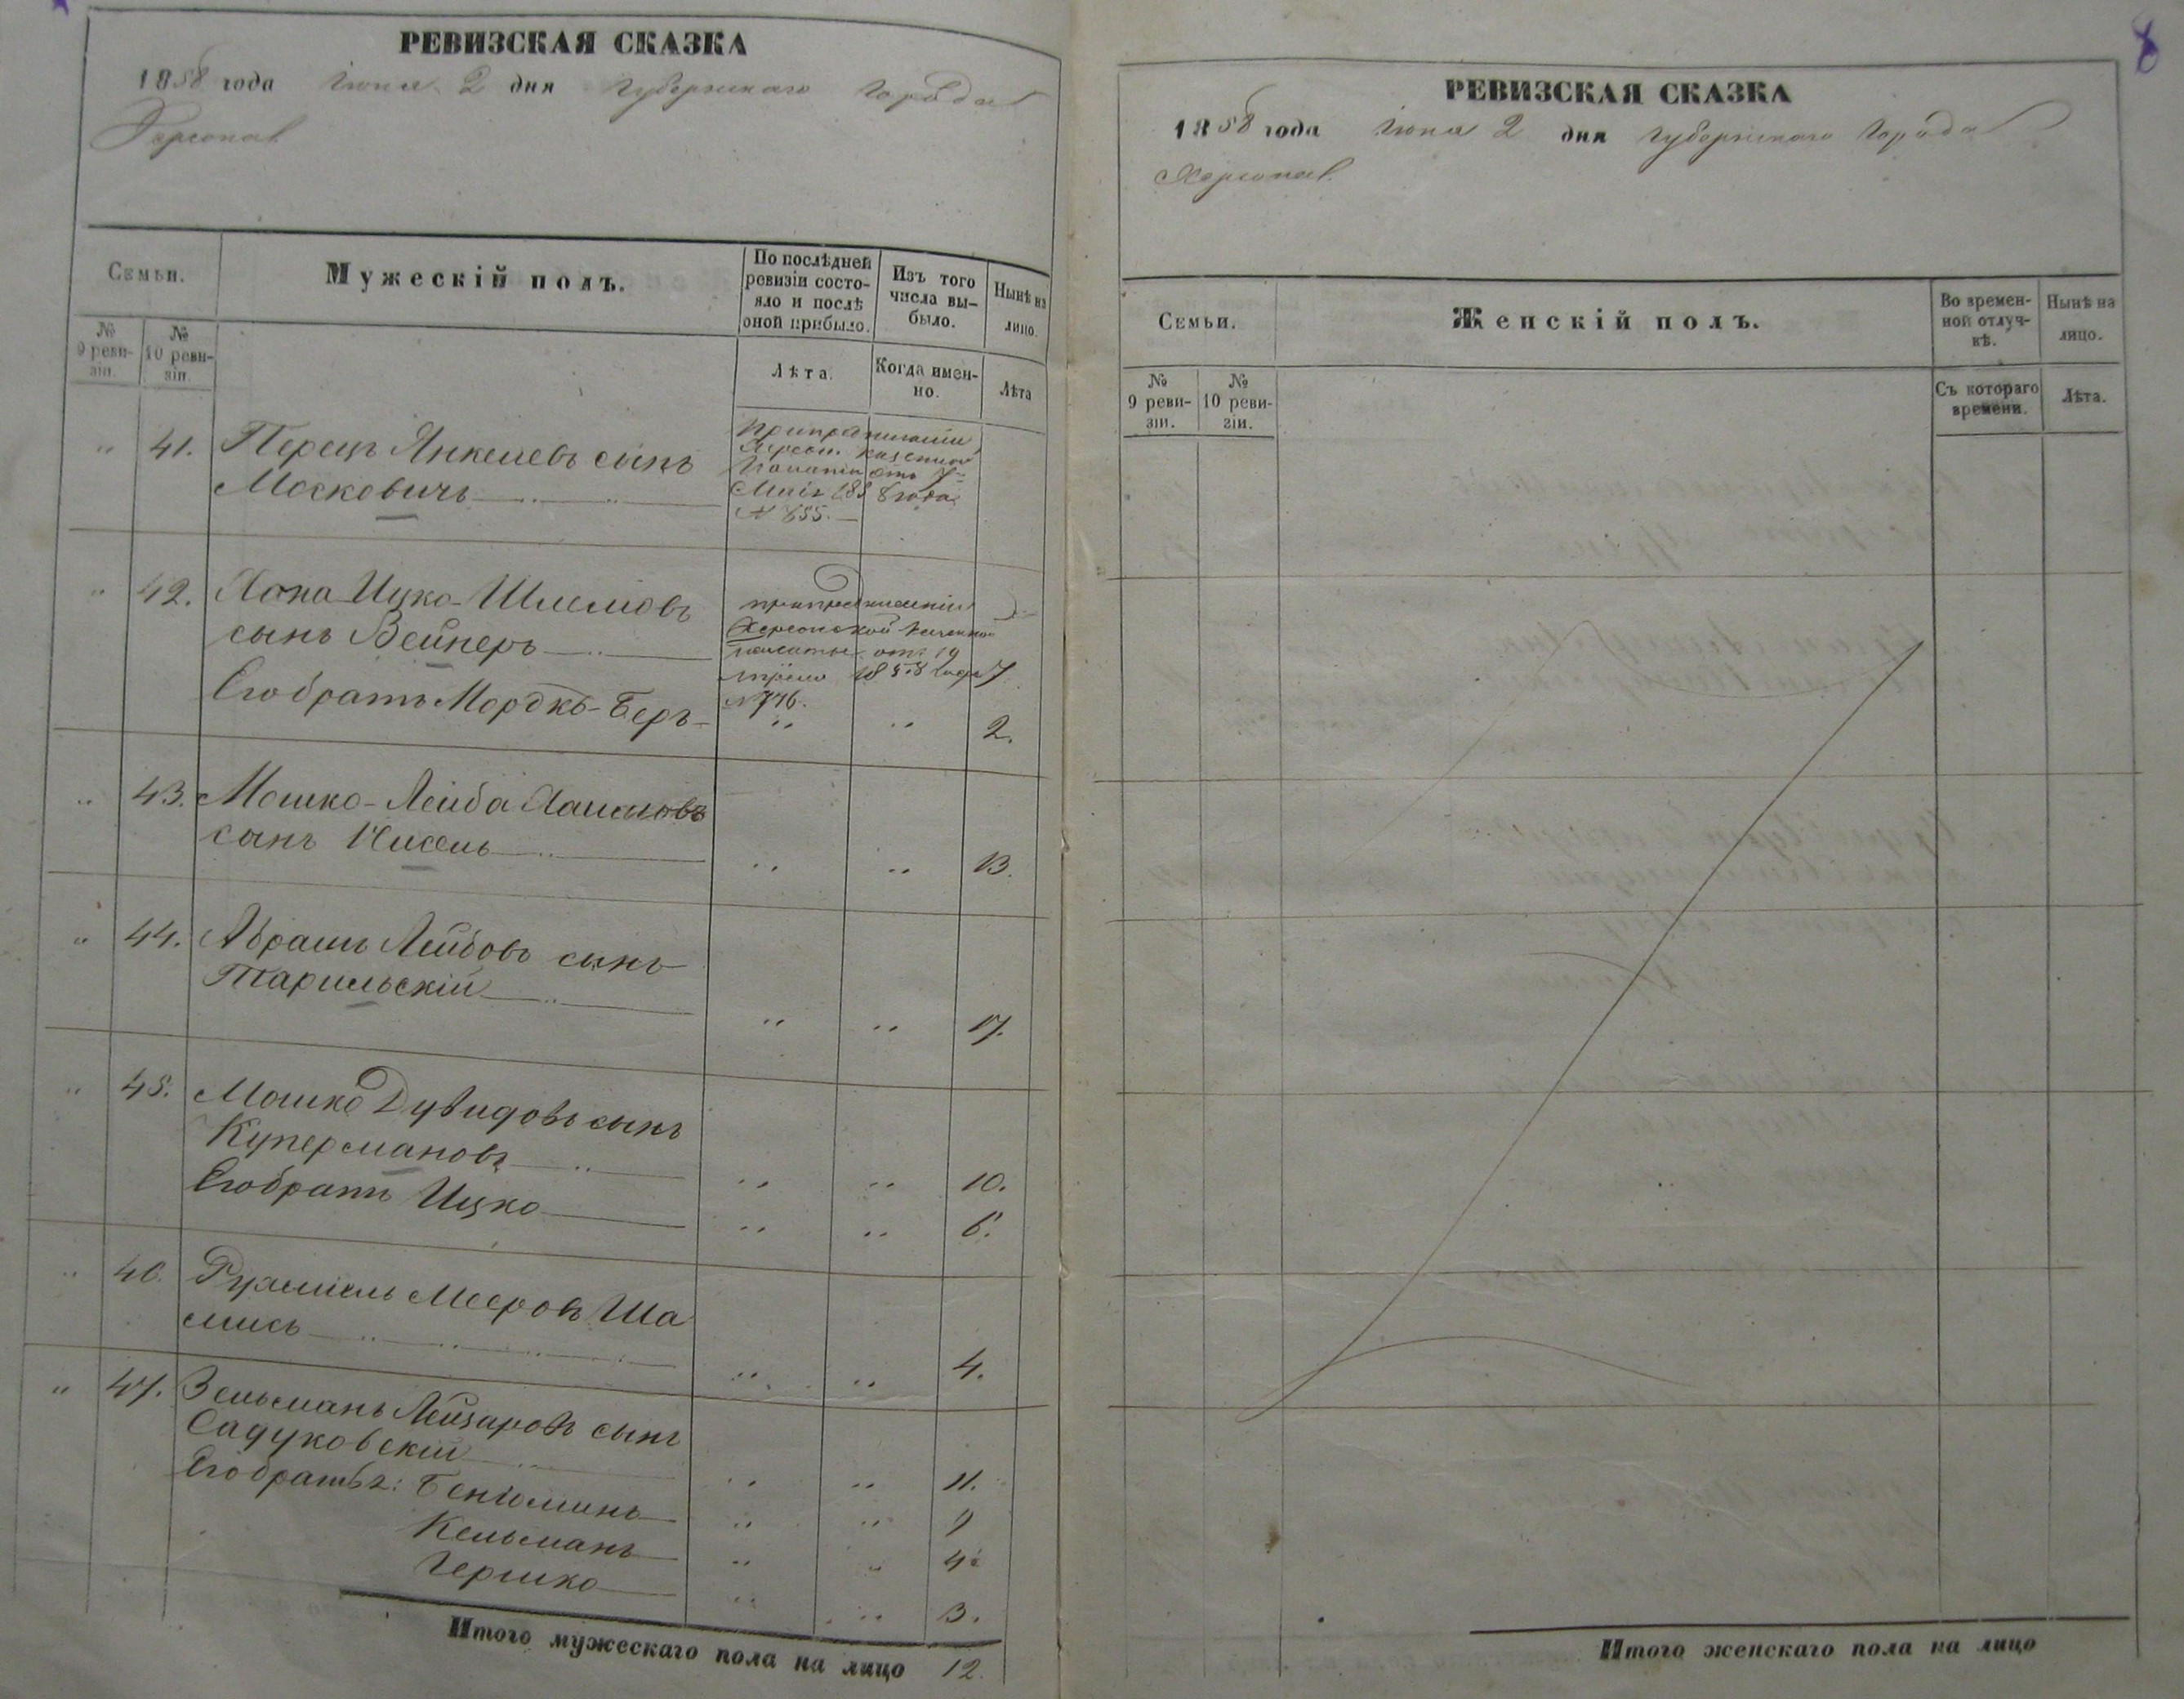 РЕВИЗСКАЯ СКАЗКА
1858 года Іюня 2 дня Губернскаго Города
Херсона
Семьи.
Мужескій полъ.
По послѣдней ревизіи состояло и послѣ оной прибыло.
Изъ того числа выбыло.
Нынѣ на лицо.
№ 9 ревизіи.
№ 10 ревизіи.
Лѣта.
Когда именно.
Лѣта
" 41. Перецъ Янкелевъ сынъ
Московичъ
При предписаніи
Херсон. Казенной
Палаты отъ 7
Маія 1858 года
№ 855.
" 42. Хона Ицко-Шлемовъ
сынъ Вейнеръ
при предписаніи
Херсонской Казенной
палаты отъ 19
апрѣля 1858 года 7
№ 776.
Его братъ Мордко-Беръ " " 2.
" 43. Мошко-Лейба Хаимовъ
сынъ " " 13.
" 44. Абрамъ Лейбовъ сынъ
Тарильскій " " 17.
" 45. Мошко Дувидовъ сынъ
Куперсмановъ " " 10.
Его братъ Ицко " " 6.
" 46. Рухмиель Мееровъ Ша
мисъ " " 4.
" 47. Зельманъ Лейзаровъ сынъ
Садуковскій " " 11.
Его братья: Беніоминъ " " 9
Кельманъ " " 4
Гершко " " 3.
Итого мужескаго пола на лицо 12.
8
РЕВИЗСКАЯ СКАЗКА
1858 года Іюня 2 дня Губернскаго Города
Херсона.
Семьи.
Женскій полъ.
Во временной отлучкѣ.
Нынѣ на лицо.
№ 9 ревизіи.
№ 10 ревизіи.
Съ котораго времени.
Лѣта.
Итого женскаго пола на лицо